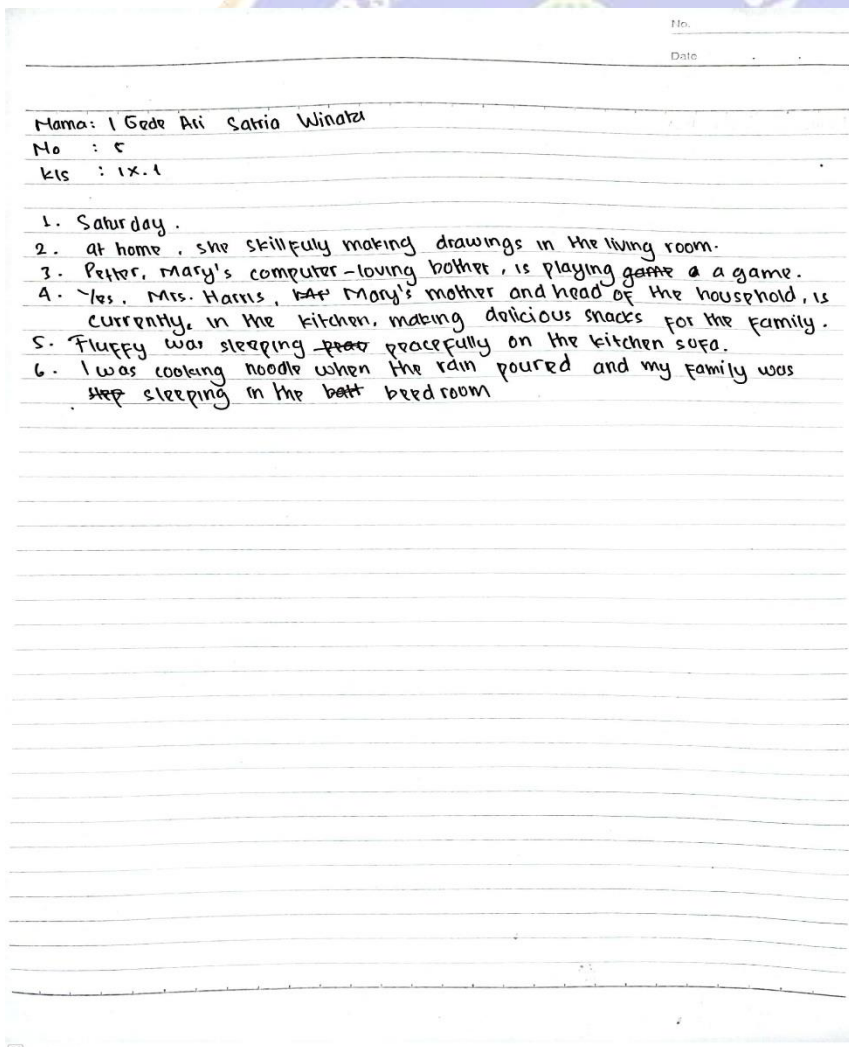 No.
Date
Nama: I Gede Ari Satria Winata
No : 5
kls : IX.1
1. Saturday.
2. at home, she skillfuly making drawings in the living room.
3. Petter, Mary's computer-loving bother, is playing game a a game.
4. Yes. Mrs. Harris, Mary's mother and head of the household, is
currently, in the kitchen, making delicious snacks for the family.
5. Fluffy was sleeping peacefully on the kitchen sofa.
6. I was cooking noodle when the rain poured and my family was
sleeping in the beedroom